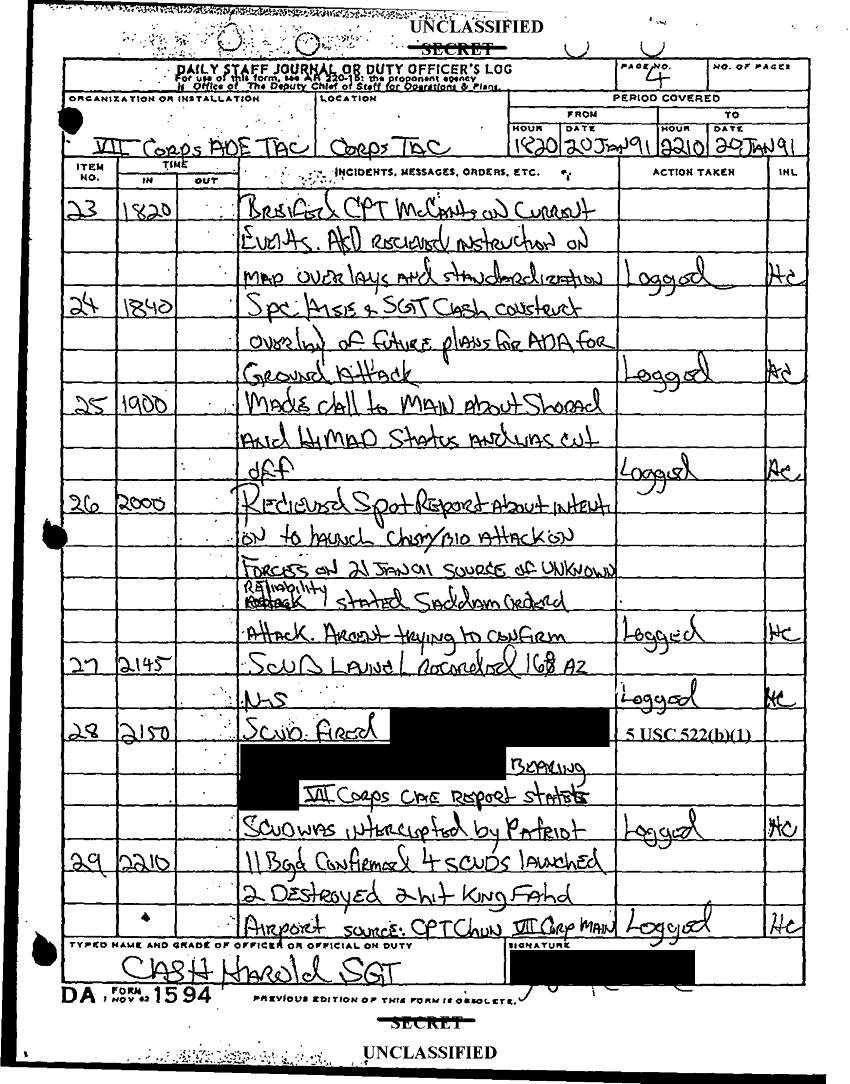 UNCLASSIFIED
SECRET
DAILY STAFF JOURNAL OR DUTY OFFICER'S LOG
For use of this form, see AR 220-15; the proponent agency
is Office of The Deputy Chief of Staff for Operations & Plans.
PAGE NO.
4
NO. OF PAGES
ORGANIZATION OR INSTALLATION
LOCATION
PERIOD COVERED
FROM
TO
HOUR
DATE
HOUR
DATE
VII Corps ADE TAC
Corps TAC
1820 20 JAN 91 2210 20 JAN 91
ITEM NO.
TIME
IN
OUT
INCIDENTS, MESSAGES, ORDERS, ETC.
ACTION TAKEN
INL
23 1820 Breifed CPT McCants on Current
Events. And recieved instruction on
map overlays and standardization Logged HC
24 1840 Spc & SGT Cash construct
overlay of future plans for ADA for
Ground Attack Logged HC
25 1900 Made call to MAIN about Shorad
and HIMAD Status and was cut
off Logged HC
26 2000 Recieved Spot Report about intenti
on to launch Chem/Bio Attack on
Forces on 21 JAN 91 source of unknown
Reliability
stated Saddam ordered
Attack. Arcent trying to confirm Logged HC
27 2145 SCUD Launch recorded 168 AZ
N-S Logged HC
28 2150 Scud fired 5 USC 522(b)(1)
Bearing
VII Corps CME report states
SCUD was intercepted by Patriot Logged HC
29 2210 11 Bgd Confirmed 4 SCUDS launched
2 Destroyed 2 hit King Fahd
Airport source: CPT Chun VII Corp MAIN Logged HC
TYPED NAME AND GRADE OF OFFICER OR OFFICIAL ON DUTY
SIGNATURE
CASH Harold SGT
DA FORM 1 NOV 62 1594
PREVIOUS EDITION OF THIS FORM IS OBSOLETE.
SECRET
UNCLASSIFIED